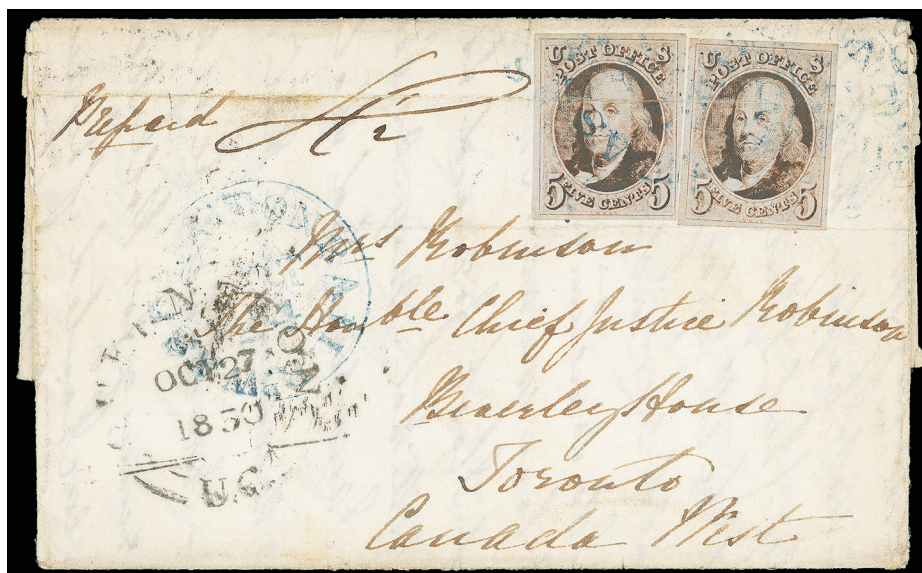 U S
POST OFFICE
5 FIVE CENTS 5
U S
POST OFFICE
5 FIVE CENTS 5
Prepaid
Mrs Robinson
The Honble Chief Justice Robinson
Beverley House
Toronto
Canada West
OCT 27
1850
U.C.